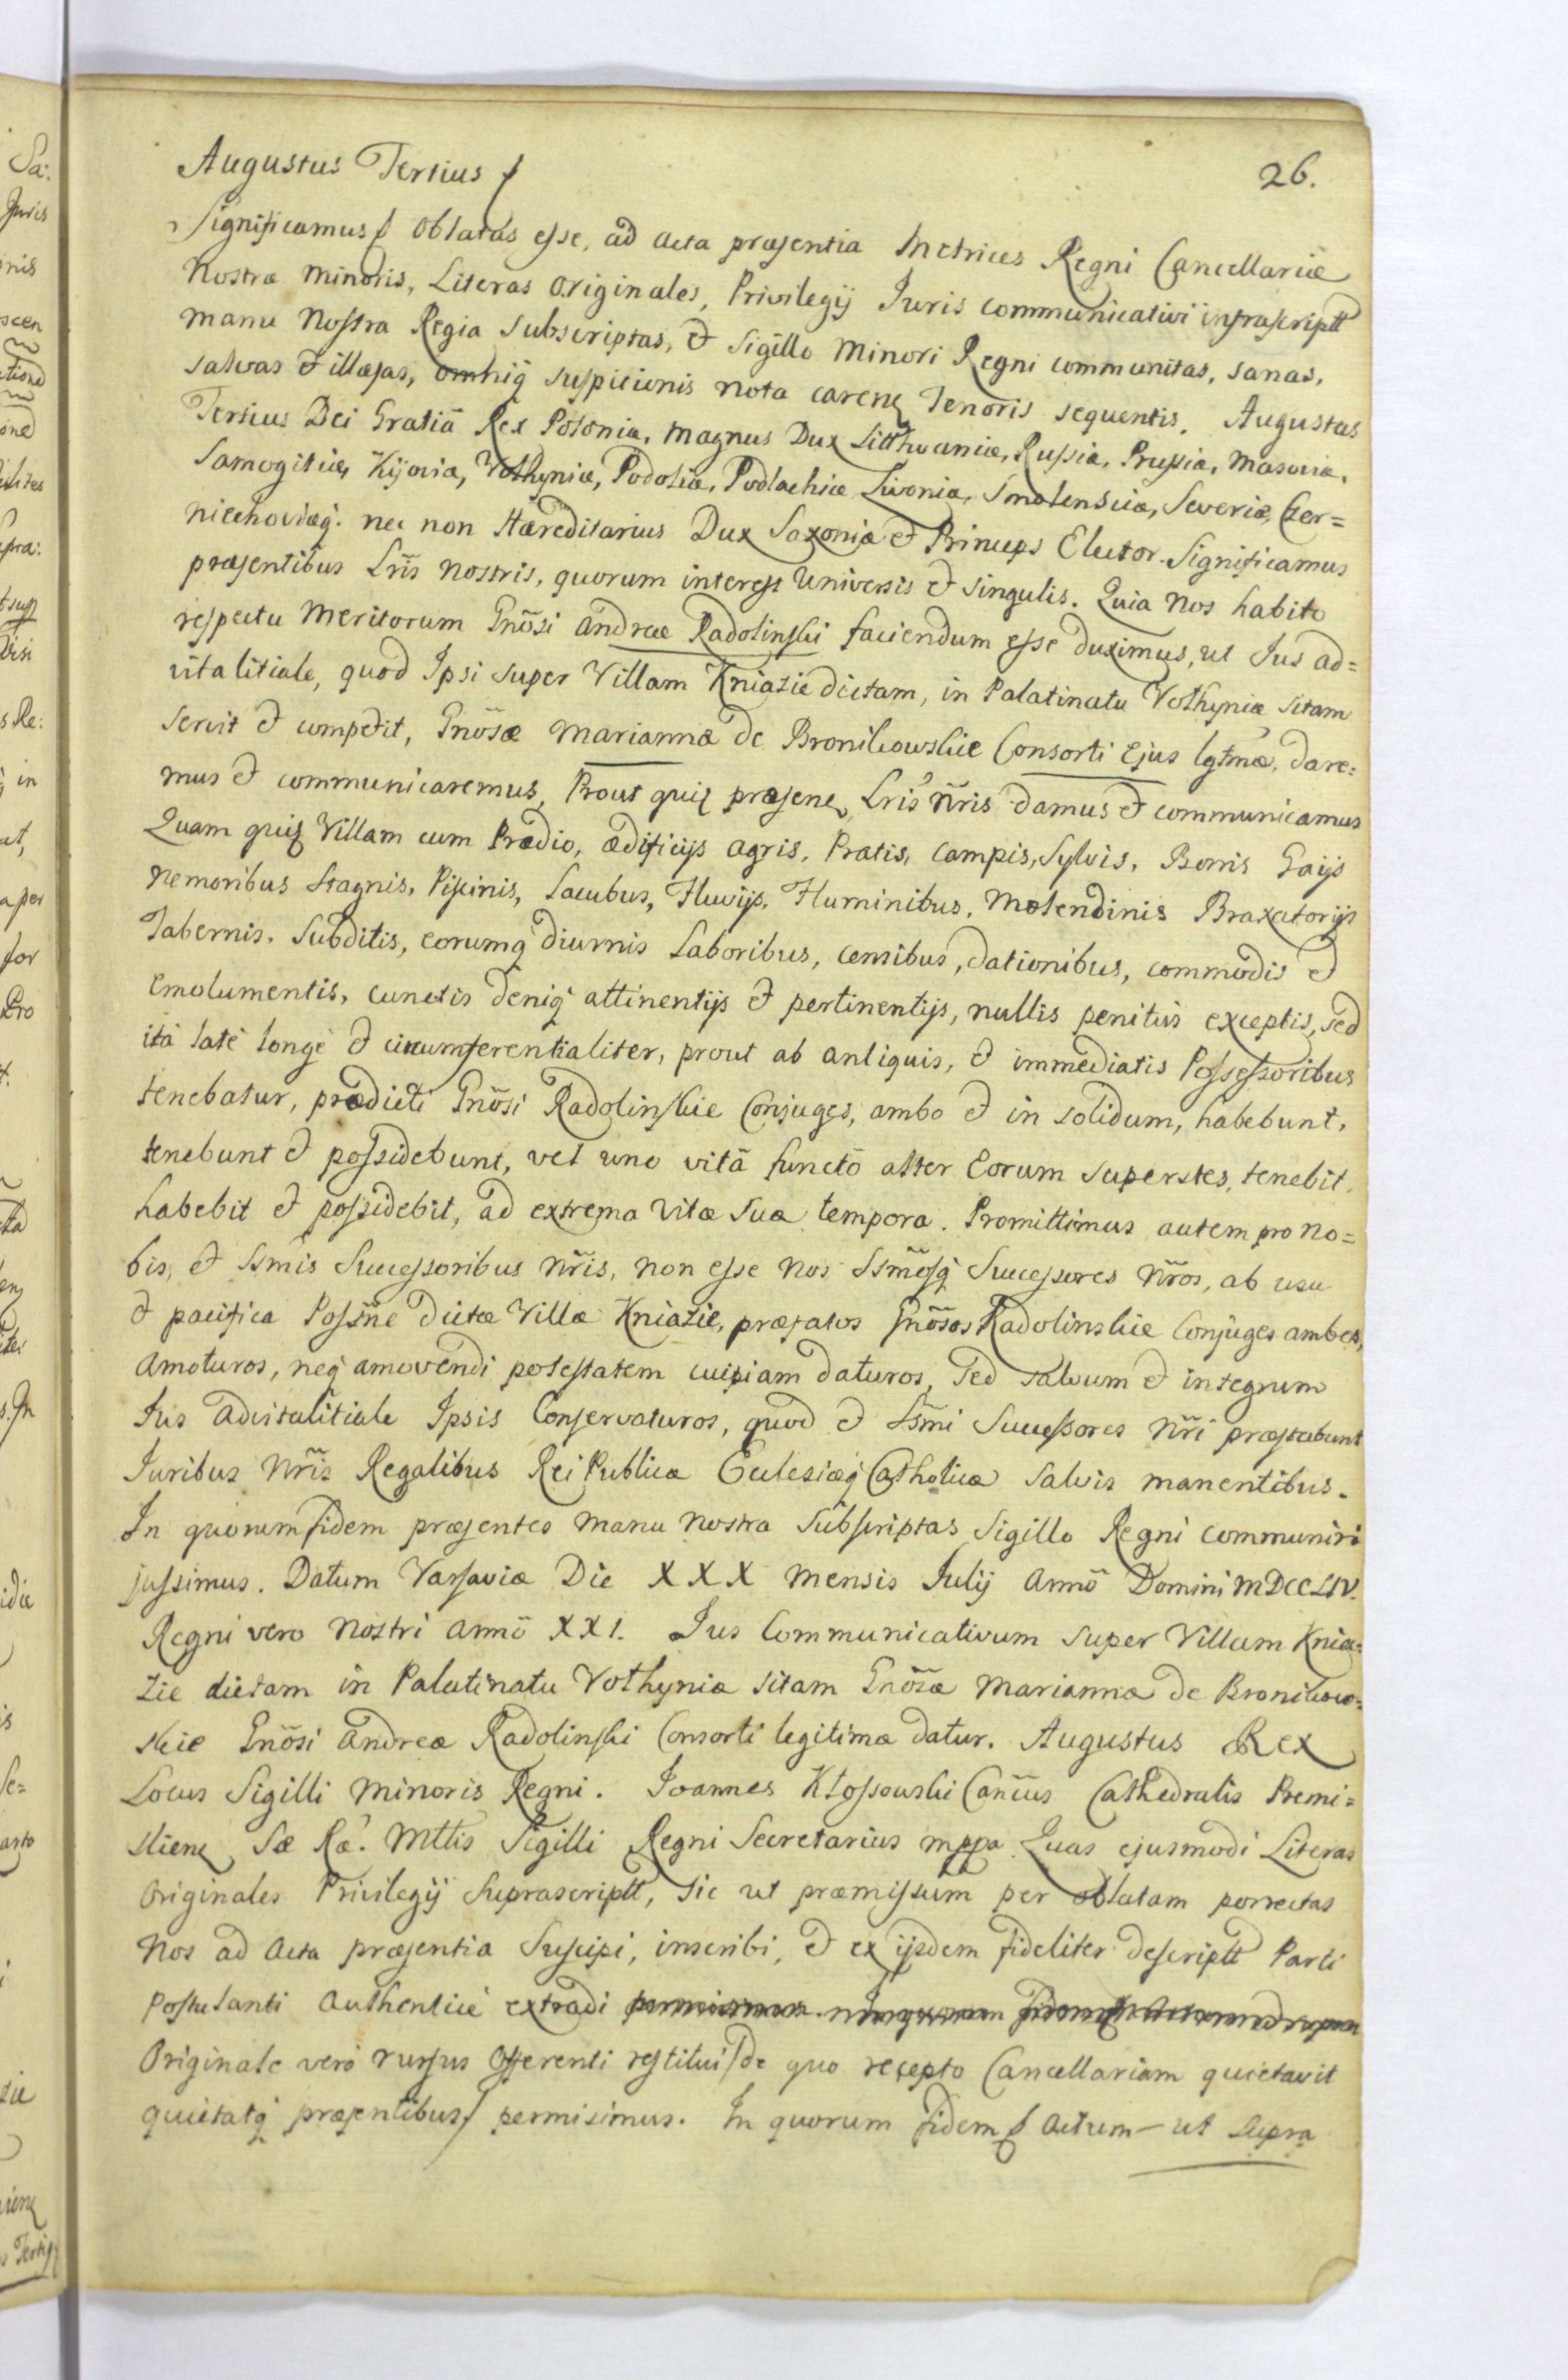 26.
Augustus Tertius
Significamus Oblatas esse, ad acta præsentia Metrices Regni Cancellariæ
Nostræ Minoris, Literas Originales, Privilegij Juris communicativi infrascriptt
manu Nostra Regia Subscriptas, et Sigillo Minori Regni communitas, sanas,
salvas et illæsas, omniq suspicionis nota caren Tenoris sequentis. Augustus
Tertius Dei Gratiâ Rex Poloniæ, Magnus Dux Litthvaniæ, Russiæ, Prussiæ, Masoviæ,
Samogitiæ, Kijoviæ, Volhyniæ, Podoliæ, Podlachiæ Livoniæ, Smolensciæ, Severiæ, Czer=
niechoviæq. nec non Hæreditarius Dux Saxoniæ et Princeps Elector. Significamus
præsentibus Lrĩs Nostris, quorum interest Universis et singulis. Quia Nos habito
respectu Meritorum Gnõsi Andreæ Radolinski faciendum esse duximus, ut Jus ad=
vitalitiale, quod Ipsi super Villam Kniazie dictam, in Palatinatu Volhyniæ sitam
servit et competit, Gnõsæ Mariannæ de Bronikowskie Consorti Ejus lgtmæ, dare=
mus et communicaremus, Prout quiq præsen Lris ñris damus et communicamus
Quam quiq Villam cum Prædio, ædificijs agris, Pratis, campis, Sylvis, Borris Gaijs
Nemoribus Stagnis, Piscinis, Lacubus, Fluvijs, Fluminibus, Molendinis Braxatorijs
Tabernis, Subditis, eorumq diurnis Laboribus, censibus, dationibus, commodis et
Emolumentis, cunctis deniq attinentijs et pertinentijs, nullis penitus exceptis, sed
ità latè longè et circumferentialiter, prout ab antiquis, et immediatis Possessoribus
tenebatur, prædicti Gnõsi Radolinskie Conjuges, ambo et in solidum, habebunt,
tenebunt et possidebunt, vel uno vitâ functô alter Eorum superstes, tenebit,
habebit et possidebit, ad extrema vitæ suæ tempora. Promittimus autem pro No=
bis, et Ssmis Successoribus Nr̃is, non esse Nos Ssm̃osq Successores Nr̃os, ab usu
et pacifica Possñe dictæ Villæ Kniazie, præfatos Gnõsos Radolinskie Conjuges ambos,
amoturos, neq amovendi potestatem cuipiam daturos, sed salvum et integrum
Jus advitalitiale Ipsis Conservaturos, quod et Ssm̃i Successores Nr̃i præstabunt
Juribus Nr̃is Regalibus Rei Publicæ Ecclesiæq Catholicæ salvis manentibus.
In quorum fidem præsentes Manu Nostra Subscriptas Sigillo Regni communiri
jussimus. Datum Varsaviæ Die XXX Mensis Julij Annô Domini MDCCLIV.
Regni vero Nostri Annô XXI. Jus Communicativum super Villam Knia=
zie dictam in Palatinatu Volhyniæ sitam Gnõsæ Mariannæ de Bronikow=
skie Gnõsi Andreæ Radolinski Consorti legitimæ datur. Augustus Rex
Locus Sigilli Minoris Regni. Joannes Kłossowski Can̄cus Cathedralis Premi=
slien Sæ Ræ. Mttis Sigilli Regni Secretarius mppa Quas ejusmodi Literas
Originales Privilegij Suprascriptt, sic ut præmissum per oblatam porrectas
Nos ad Acta præsentia Suscipi, inscribi, et ex ijsdem fideliter descriptt Parti
Postulanti Authenticè extradi
Originale verò rursus Offerenti restitui de quo recepto Cancellariam quietavit
quietatq præsentibus permisimus. In quorum fidem Actum – ut supra